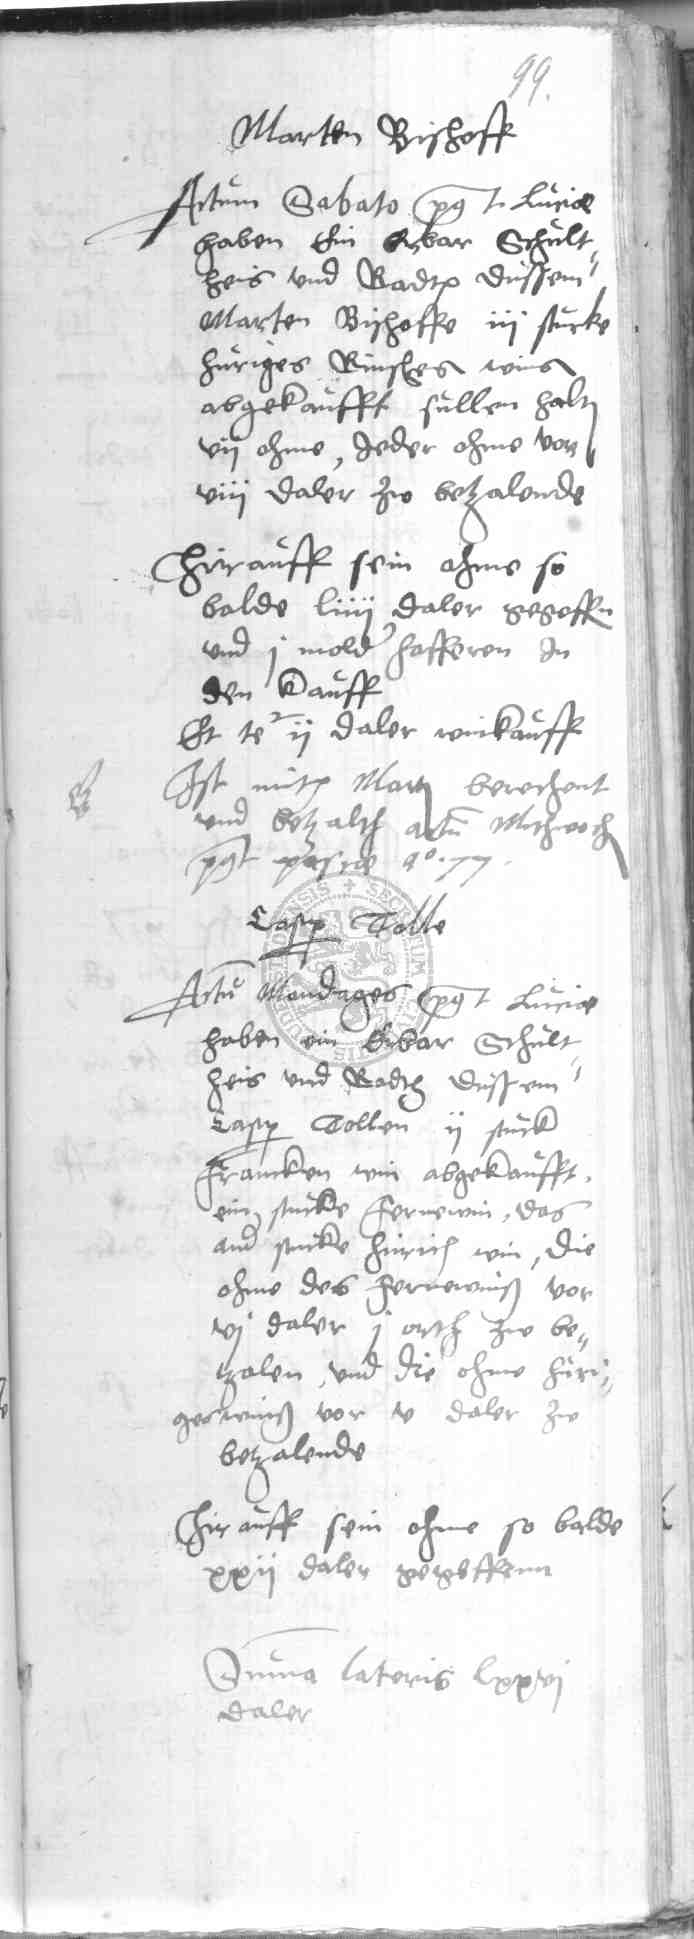 99.
Marten Bischoff
Actum Sabato pꝰt Luciæ
haben Ein Erbar Schult-
heis und Radtꝫ dussem
Marten Bischoffe iij stucke
huriges Rinsches wins
abgekaufft sullen halt
vij ohme, Jeder ohme vor
viij daler zu betzalende
Hirauff sein ohme so
balde liiij daler gegeffen
und j mold hafferen In
den kauff
Et te ij daler winkauff
Ist mit Mart berechent
und betzalth actu Mithwoch
pꝰt pascæ aº. 77.
Casp Tolle
Actū Mondages pꝰt Luciæ
haben ein Erbar Schult-
heis und Radth dussem
Casp Tollen ij stuck
francken win abgekaufft.
ein stucke fernewin, das
and stucke hurich win, die
ohme des fernewinß vor
vj daler j orth zu be-
tzalen, und die ohme huri-
geswinß vor v daler zu
betzalende
Hirauff sein ohme so balde
xxij daler gegeffenn
Suma lateris lxxvj
daler